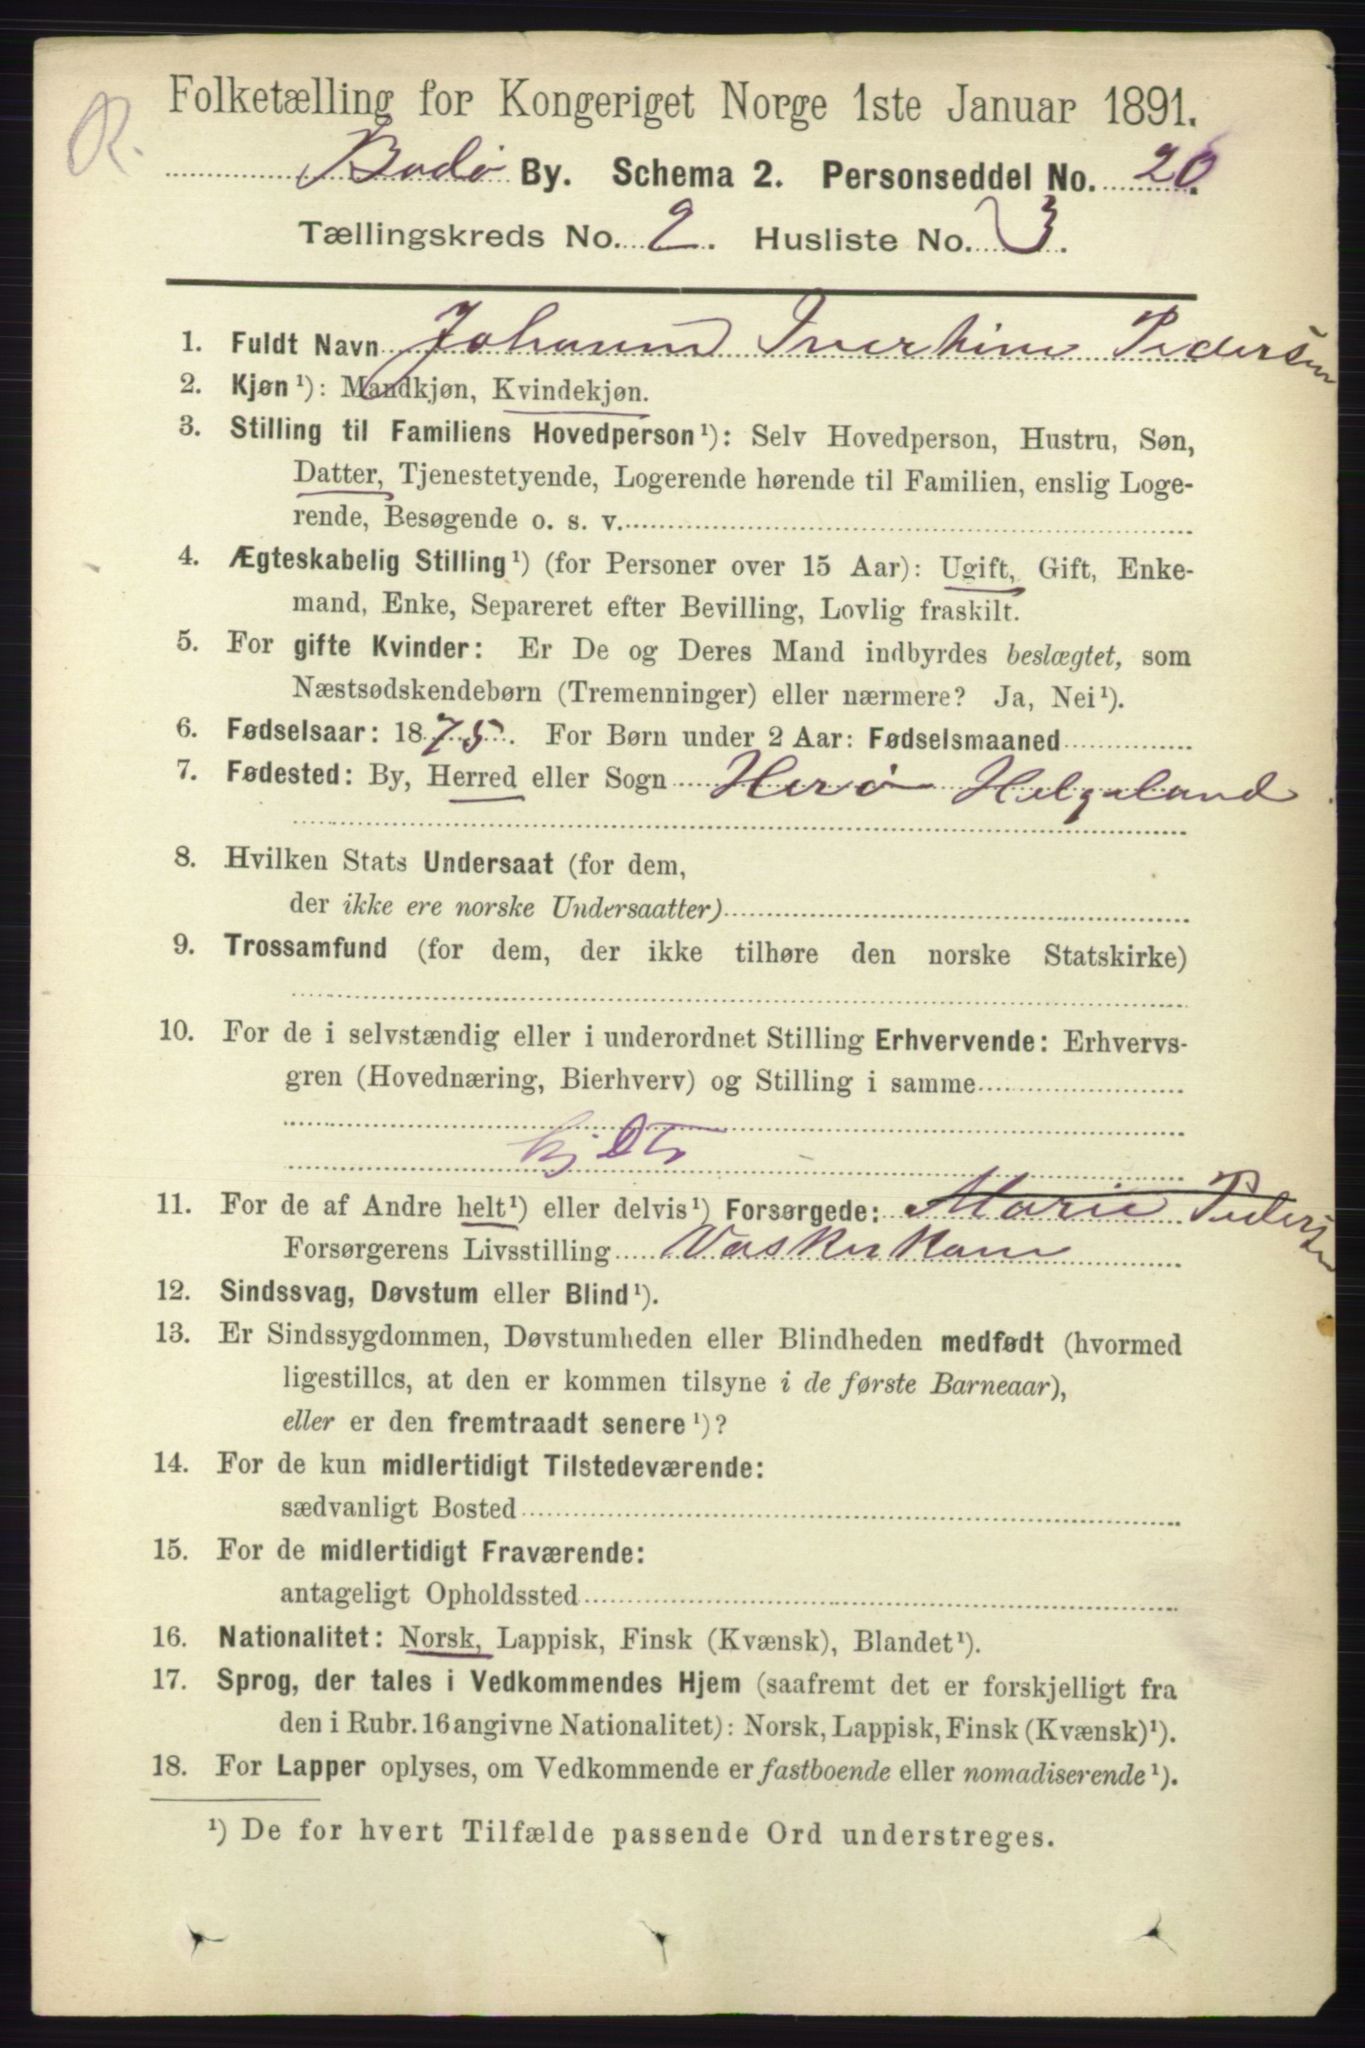 R.
Folketælling for Kongeriget Norge 1ste Januar 1891.
Bodø By. Schema 2. Personseddel No. 20.
Tællingskreds No. 2. Husliste No. 3.
1. Fuldt Navn Johanna Pedersen
2. Kjøn ¹): Mandkjøn, Kvindekjøn.
3. Stilling til Familiens Hovedperson ¹): Selv Hovedperson, Hustru, Søn,
Datter, Tjenestetyende, Logerende hørende til Familien, enslig Loge-
rende, Besøgende o. s. v.
4. Ægteskabelig Stilling ¹) (for Personer over 15 Aar): Ugift, Gift, Enke-
mand, Enke, Separeret efter Bevilling, Lovlig fraskilt.
5. For gifte Kvinder: Er De og Deres Mand indbyrdes beslægtet, som
Næstsødskendebørn (Tremenninger) eller nærmere? Ja, Nei ¹).
6. Fødselsaar: 1875. For Børn under 2 Aar: Fødselsmaaned
7. Fødested: By, Herred eller Sogn Herø Helgeland
8. Hvilken Stats Undersaat (for dem,
der ikke ere norske Undersaatter)
9. Trossamfund (for dem, der ikke tilhøre den norske Statskirke)
10. For de i selvstændig eller i underordnet Stilling Erhvervende: Erhvervs-
gren (Hovednæring, Bierhverv) og Stilling i samme
11. For de af Andre helt ¹) eller delvis ¹) Forsørgede: Marie Pedersen
Forsørgerens Livsstilling Vaskerkone
12. Sindssvag, Døvstum eller Blind ¹).
13. Er Sindssygdommen, Døvstumheden eller Blindheden medfødt (hvormed
ligestilles, at den er kommen tilsyne i de første Barneaar),
eller er den fremtraadt senere ¹)?
14. For de kun midlertidigt Tilstedeværende:
sædvanligt Bosted
15. For de midlertidigt Fraværende:
antageligt Opholdssted
16. Nationalitet: Norsk, Lappisk, Finsk (Kvænsk), Blandet ¹).
17. Sprog, der tales i Vedkommendes Hjem (saafremt det er forskjelligt fra
den i Rubr. 16 angivne Nationalitet): Norsk, Lappisk, Finsk (Kvænsk) ¹).
18. For Lapper oplyses, om Vedkommende er fastboende eller nomadiserende ¹).
¹) De for hvert Tilfælde passende Ord understreges.